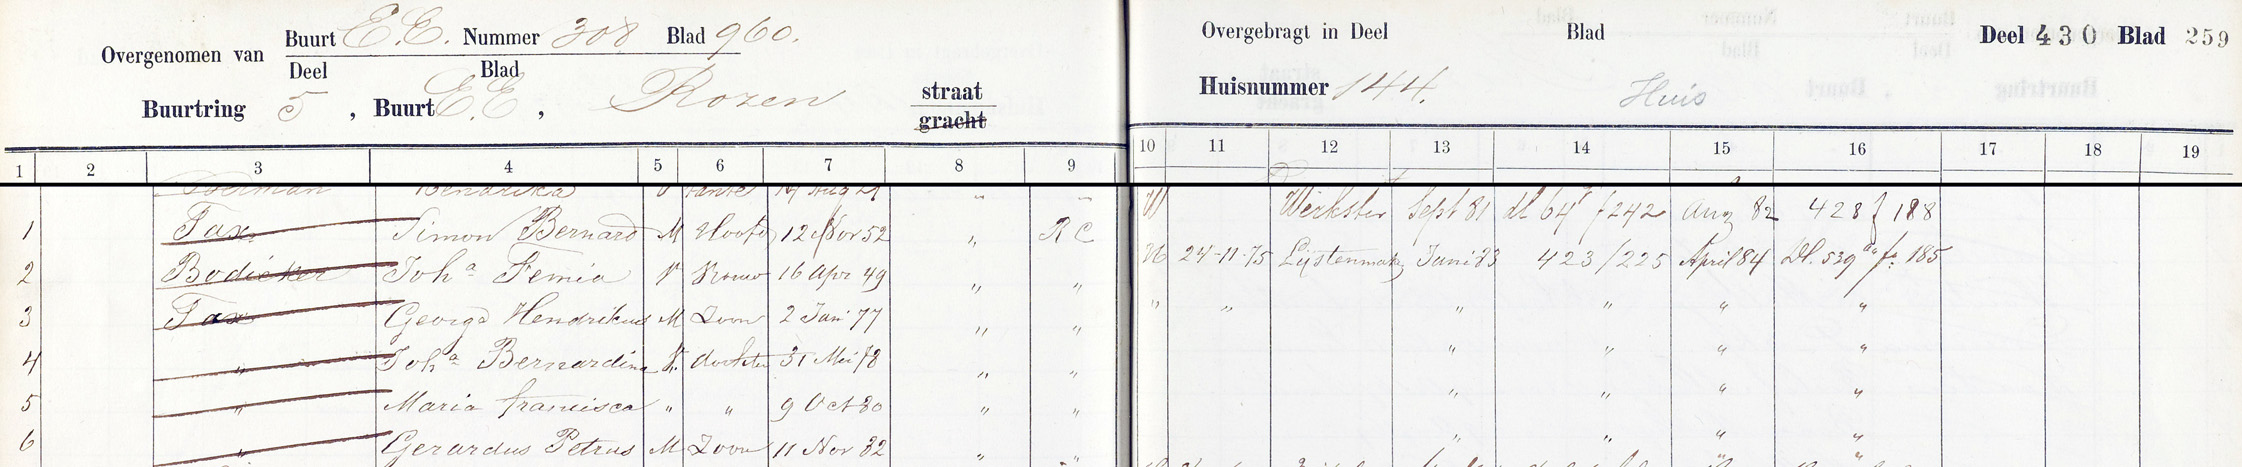 Overgenomen van Buurt E.E. Nummer 308 Blad 960.
Deel Blad
Buurtring 5, Buurt E.E, Rozen straat
gracht
Overgebragt in Deel Blad Deel 430 Blad 259
Huisnummer 144. Huis
1 2 3 4 5 6 7 8 9 10 11 12 13 14 15 16 17 18 19
Hendrika V tante Aug " " W Werkster Sept 81 dl 64 f 242 Aug 82 428 f 188
1 Tax Simon Bernard M Hoofd 12 Nov 52 " R C H 24-11-75 Lijstenmak Juni 83 423/225 April 84 Dl. 539 fo 185
2 Bodicker Joha Femia V Vrouw 16 Apr 49 " " " " " " " "
3 Tax George Hendrikus M Zoon 2 Jan 77 " " " " " "
4 " Joha Bernardina V. dochter 31 Mei 78 " " " " " "
5 " Maria francisca " " 9 Oct 80 " " " " " "
6 " Gerardus Petrus M Zoon 11 Nov 82 " " "